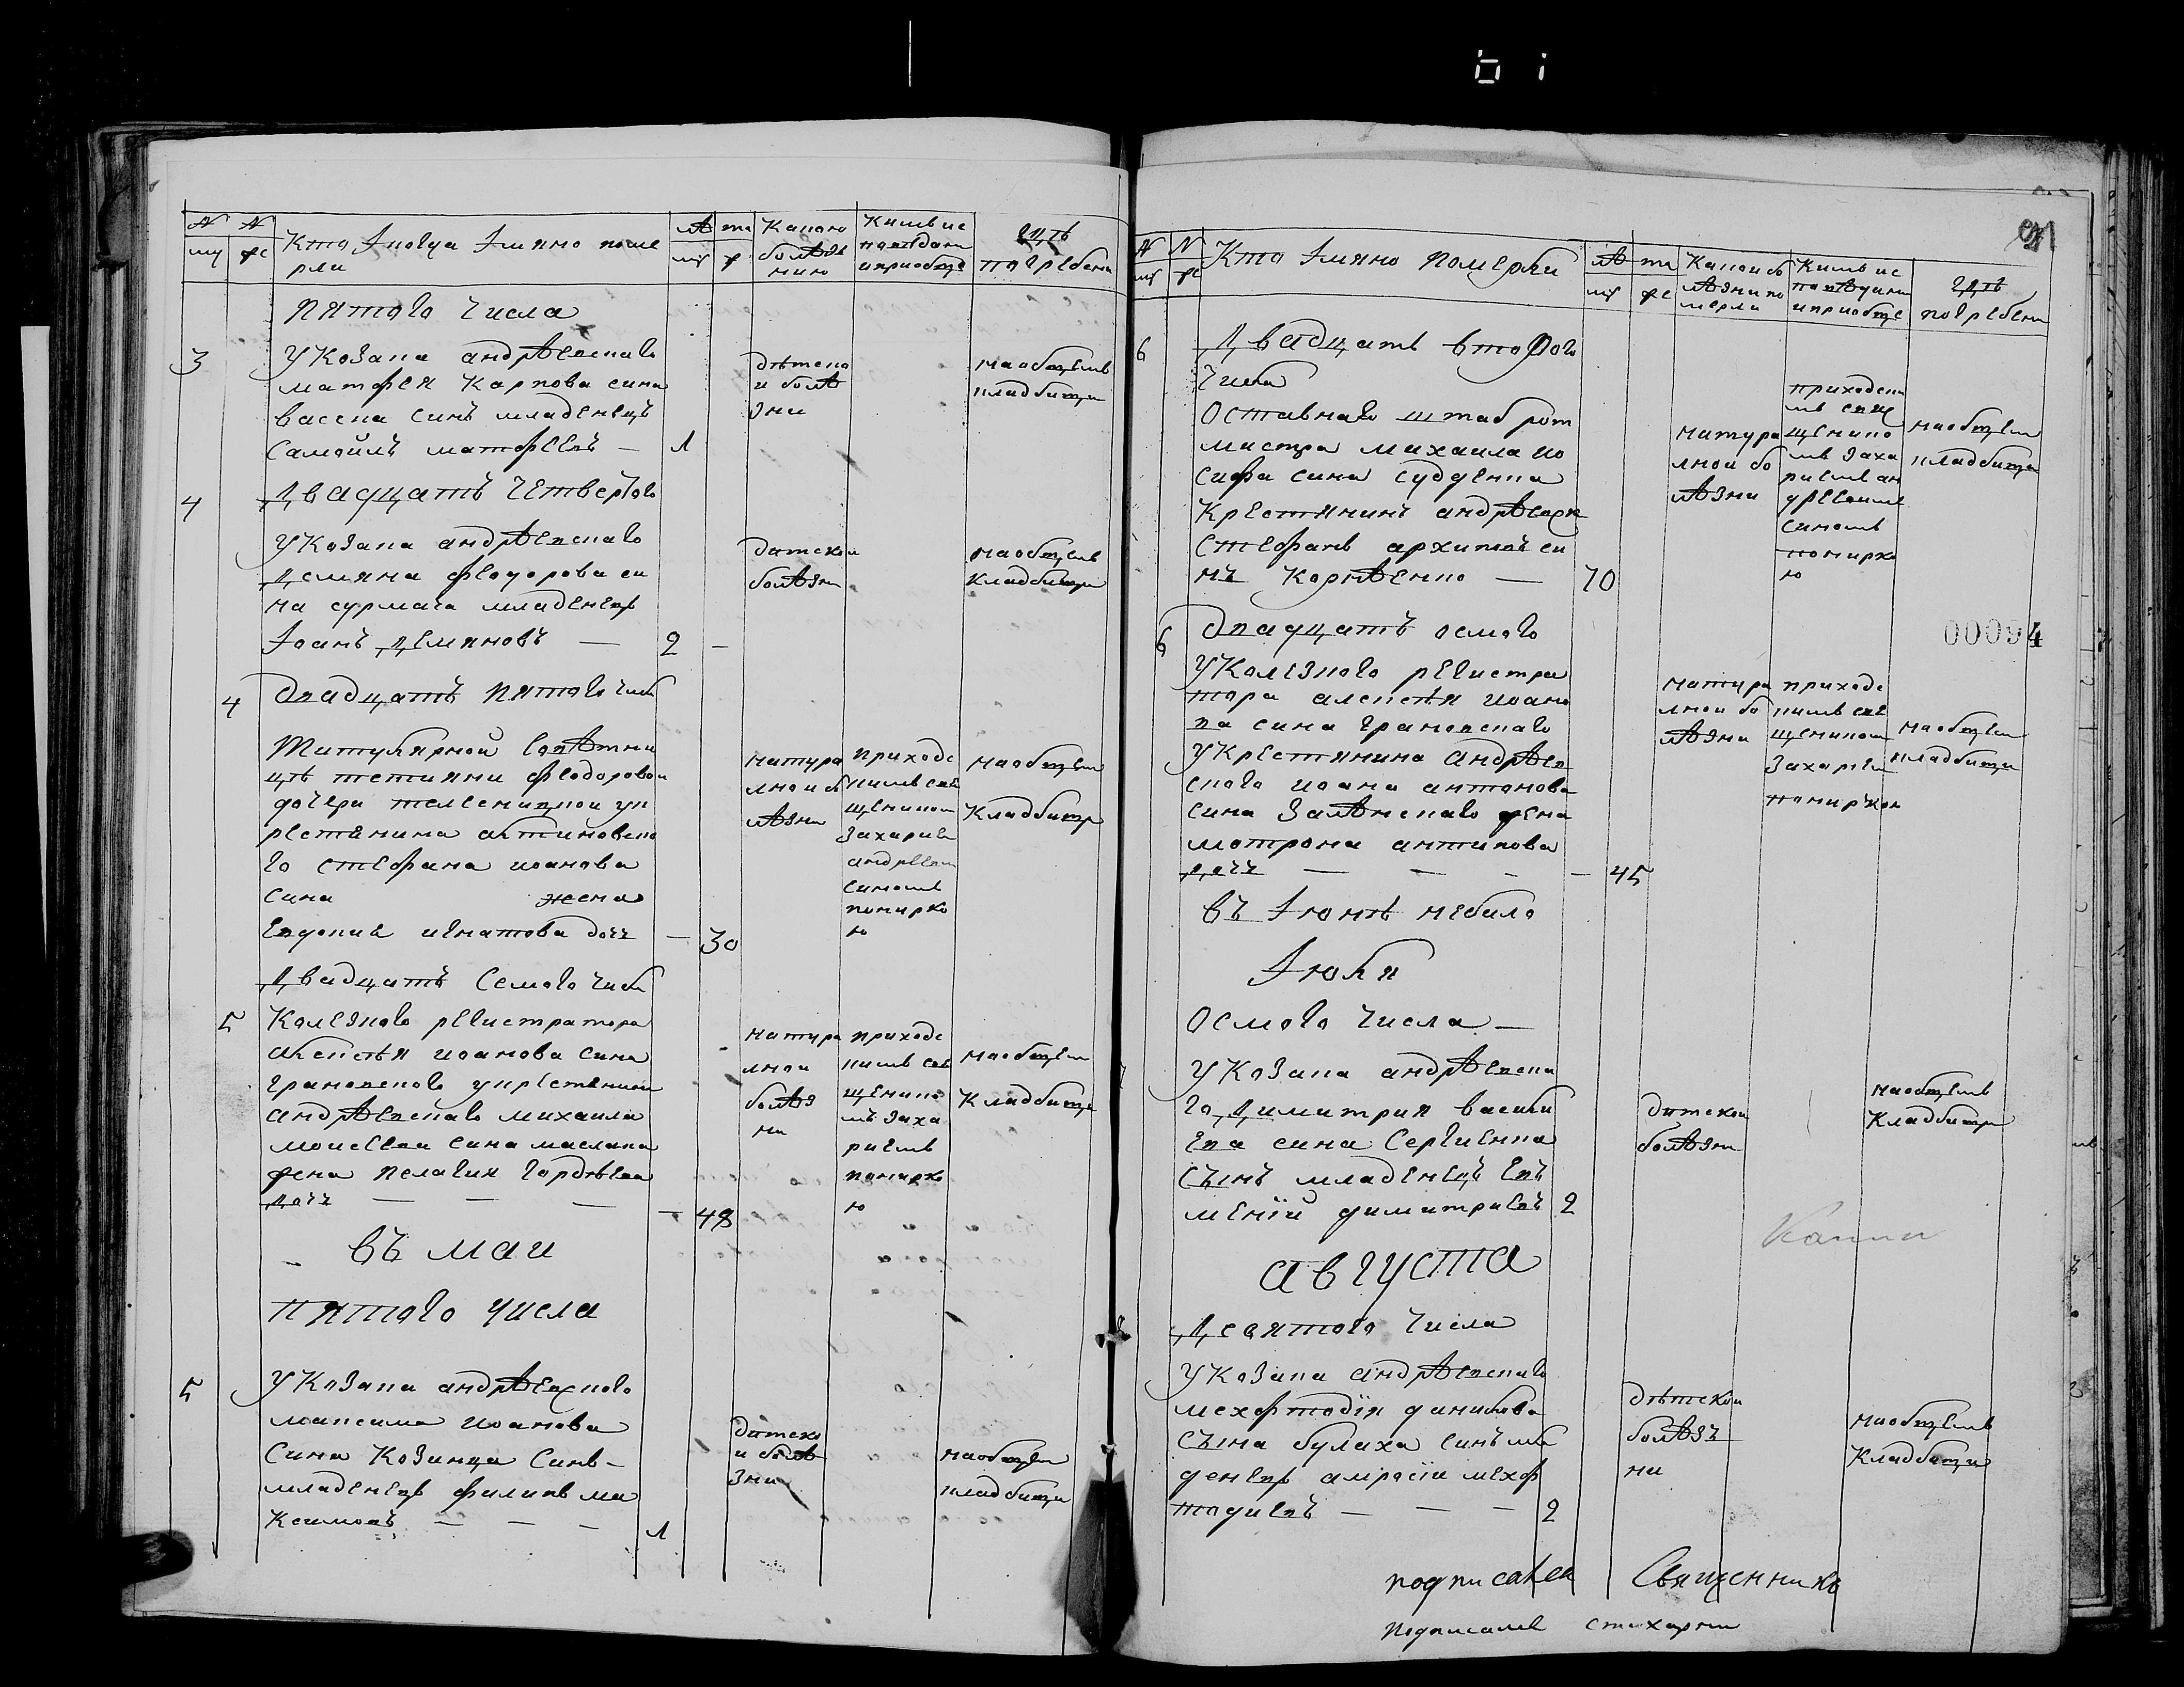 № №
му же
Кто Iповда Iмянно поме
рли
лѣ та
му ж
Какою
болѣзе
нию
Кимъ ис
повѣдани
иприобще
гдѣ
погребени
пятого числа
3
У Козака андрѣевскаго
матфея Карпова сина
васека синъ младенецъ
Самойлъ матфеевъ — 1
дѣтско
и болѣ
зни
наобщемъ
кладбищи
4
Двадцать четвертого
У Козака андрѣевскаго
Демяна феодорова си
на сурмача младенецъ
Iоанъ Демяновъ — 2 –
дѣтскои
болѣзни
наобщемъ
Кладбищи
4
двадцать пятого числа
Титулярной совѣтни
цѣ тетияни феодоровои
дочери укр
рестянина
го стефана иоанова
сина жена
Евдокия игнатова дочь — 30
натура
лнои бо
лѣзни
приходс
кимъ свя
щеникомъ
Захарием
андреевим
синомъ
понирко
ю
наобщем
Кладбищи
Двадцать Семого числа
5
Колезкого регистратора
алексѣя иоанова сина
грановского укрестянина
андрѣевскаго михаила
моисеева сина маслака
жена пелагия гордѣева
дочь — — — 48
натура
лнои
болѣз
ни
приходс
кимъ свя
щенико
мъ заха
риемъ
понирко
ю
наобщем
Кладбищи
въ маи
пятого числа
5
У Козака андрѣевского
максима иоанова
Сина Козинца Синъ –
младенецъ филипъ ма
ксимовъ — — — 1
дѣтско
и болѣ
зни
наобщем
кладбищи
№ №
му же
Кто Iмяно померли
лѣ та
му же
Какои бо
лѣзни по
мерли
Кимъ ис
повѣдани
иприобще
гдѣ
погребени
6
Двадцать второго
числа
Оставнаго штаб рот
мистра михаила ио
сифа сина судденка
Крестянинъ андрѣевск
Стефанъ архиповъ си
нъ Корнѣенко — 70
натура
лнои бо
лѣзни
приходски
мъ свящ
щенико
мъ Заха
риемъ ан
дреевимъ
синомъ
понирко
ю
наобщем
кладбищи
00094
6
двадцать осмого
У Колезкого регистра
тора алексѣя иоано
ва сина грановскаго
У Крестянина андрѣев
ского иоана антонова
сина Залѣнскаго жена
мотрона антипова
дочь — — - — 45
натура
лнои бо
лѣзни
приходс
кимъ свя
щеником
Захарием
пониркою
наобщем
кладбищи
въ Iюнѣ небило
Iюля
Осмого числа —
У Козака андрѣевска
го Димитрия васили
ева сина Сергиенка
Сынъ младенецъ Ев
мений димитриевъ 2
дѣтскои
болѣзни
наобщемъ
Кладбищи
августа
Десятого числа
У Козака андрѣевскаго
мехфтодiя данилова
сына булаха синъ мла
денецъ амрасiи мехф
тодиевъ — — — 2
дѣтскои
болѣзъ
ни
наобщемъ
Кладбищи
подписался Священникъ
Подписалъ стихарни